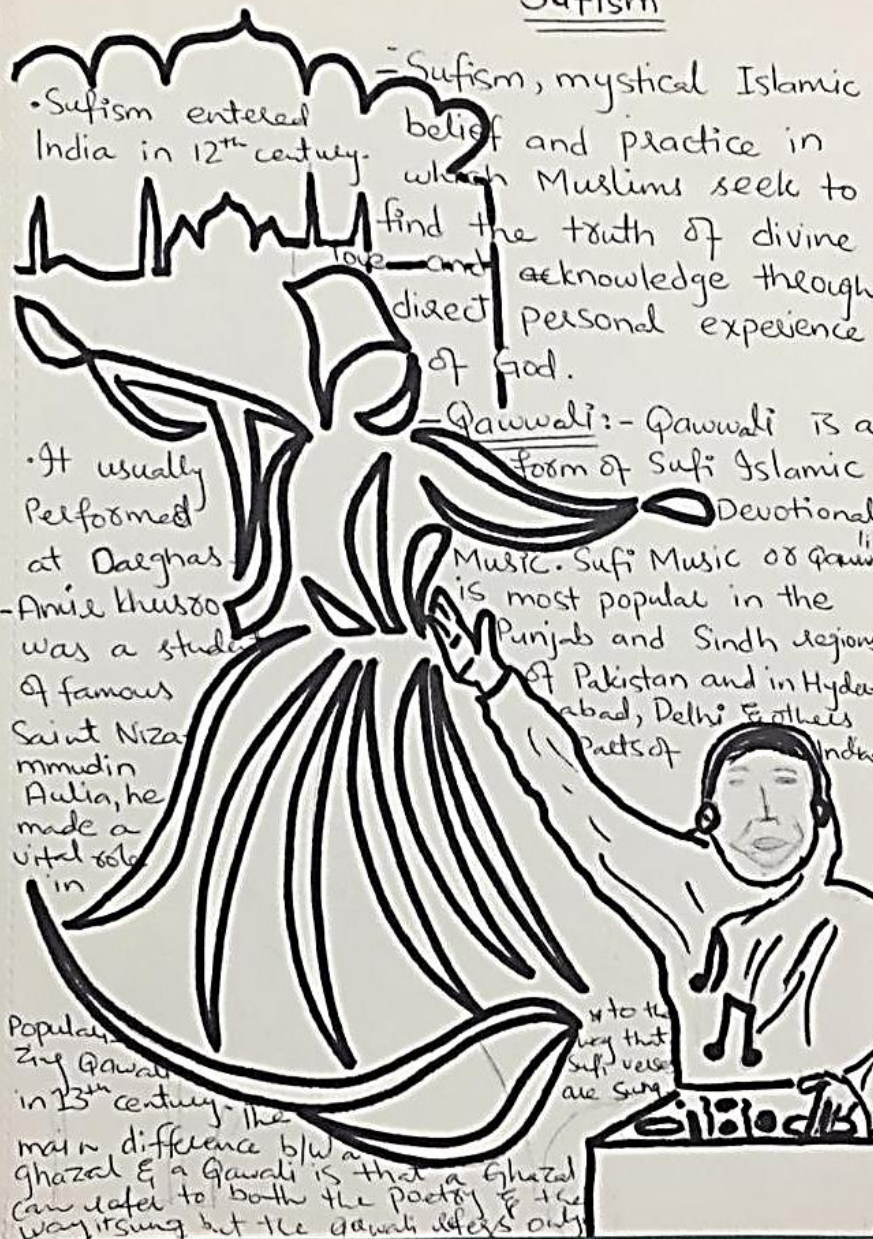 Sufism
- Sufism, mystical Islamic
belief and practice in
which Muslims seek to
find the truth of divine
love and acknowledge through
direct personal experience
of God.
- Qawwali :- Qawwali is a
form of Sufi Islamic
Devotional
Music. Sufi Music or Qawwli
is most popular in the
Punjab and Sindh region
of Pakistan and in Hyder
abad, Delhi & others
Parts of India
• Sufism entered
India in 12th century.
• It usually
Performed
at Darghas
- Amir khusro
was a student
of famous
Saint Niza
mmudin
Aulia, he
made a
vital role
in
Populari
zing Qawali
in 13th century. The
main difference b/w a
ghazal & a Qawali is that a Ghazal
can refer to both the poetry & the
way it sung but the qawali refers only
to the
way that
Sufi verse
are sung